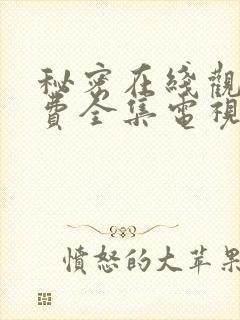 秘密在綫觀
費全集電視
憤怒的大苹果